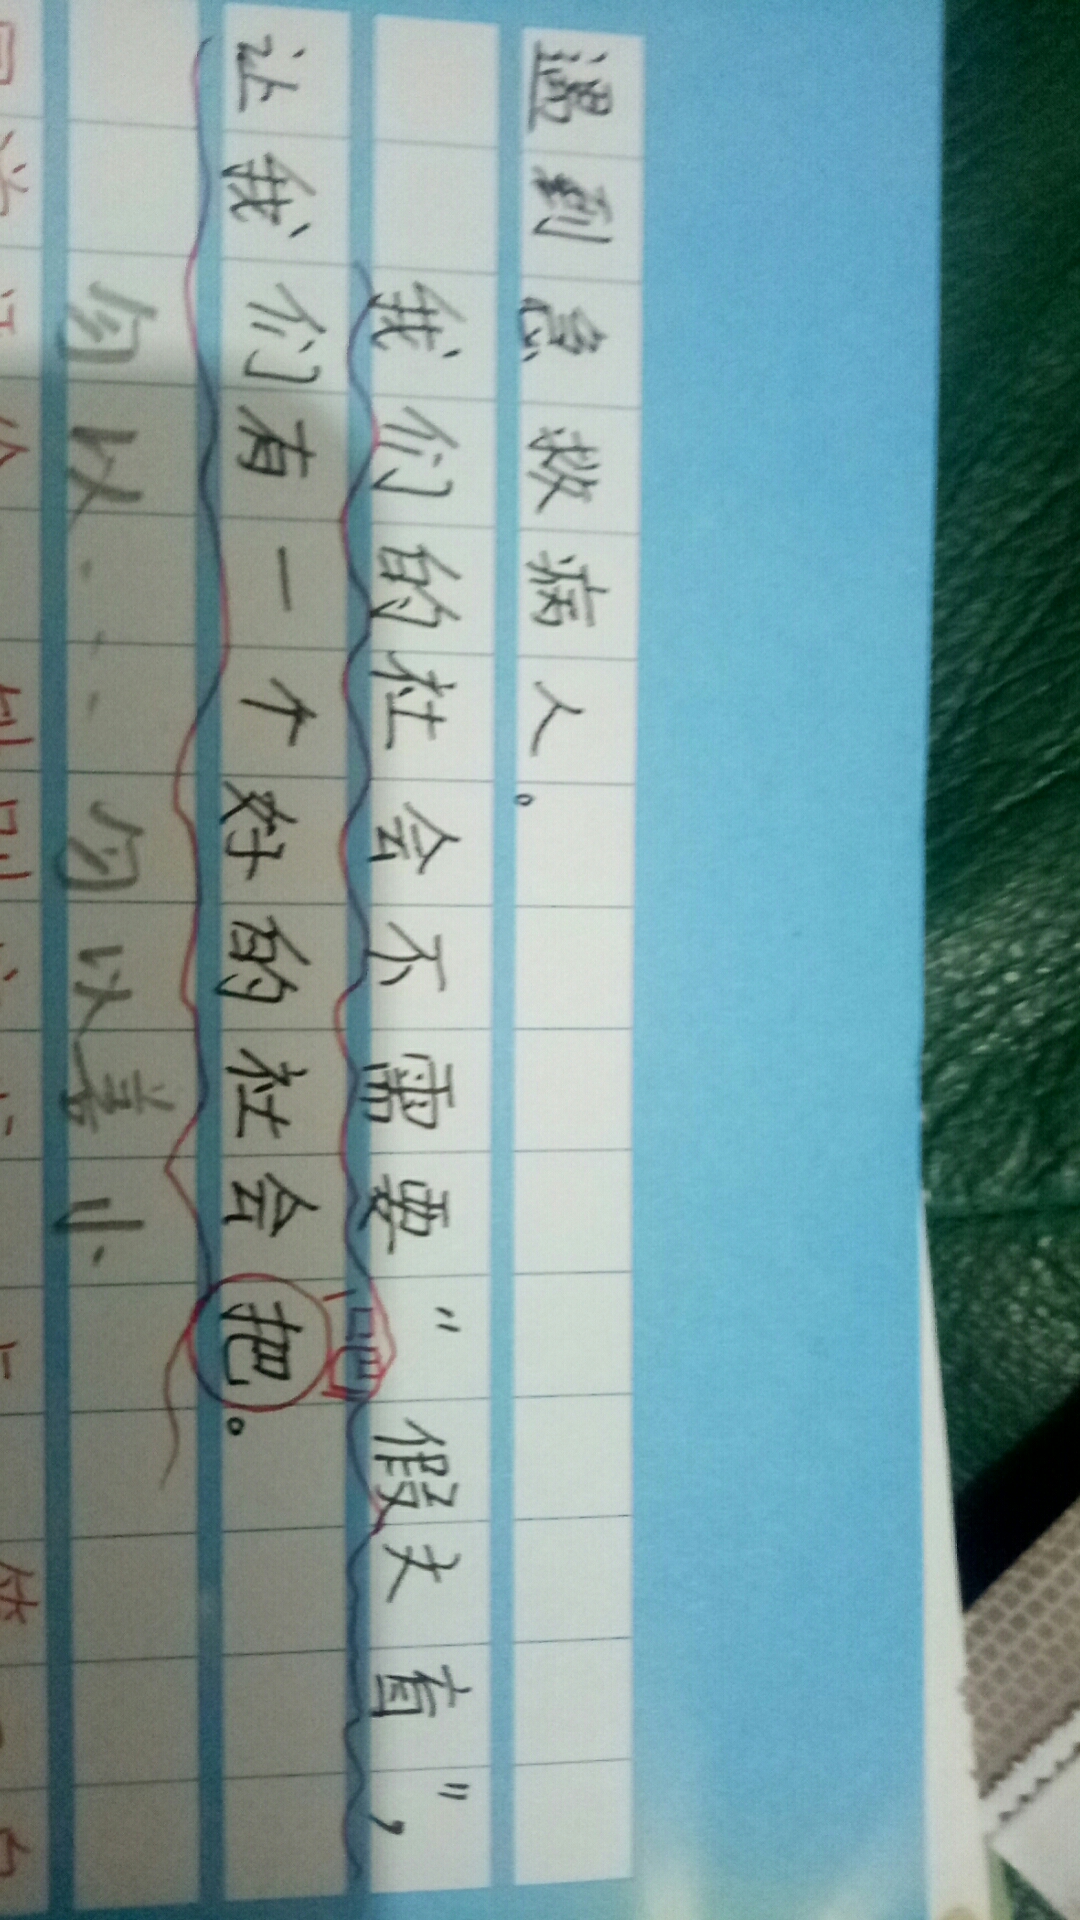 遇到急救病人。
我们的社会不需要“假文盲”，
吧
让我们有一个好的社会把。
勿以...勿以善小